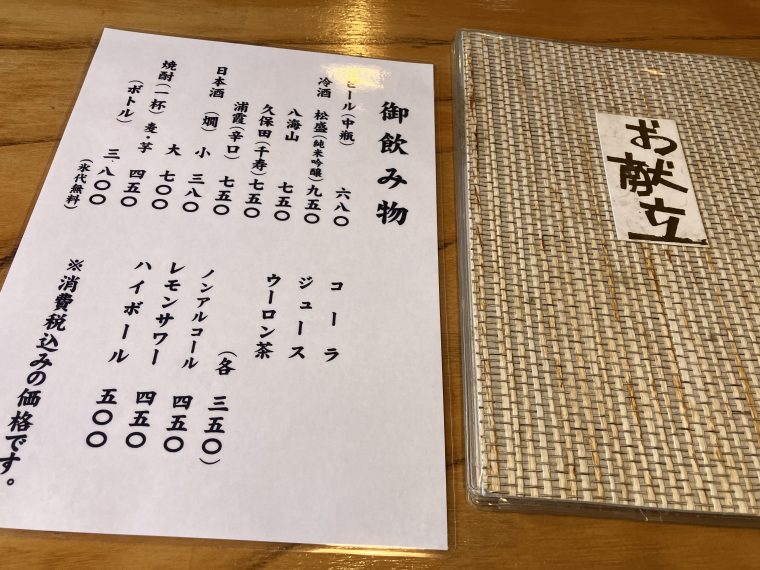 御飲み物
ビール(中瓶) 六八〇
冷酒 松盛(純米吟醸) 九五〇
八海山 七五〇
久保田(千寿) 七五〇
浦霞(辛口) 七五〇
日本酒 (燗) 小 三八〇
大 七〇〇
焼酎(一杯) 麦・芋 四五〇
(ボトル) 三、八〇〇
(氷代無料)
コーラ
ジュース
ウーロン茶
(各 三五〇)
ノンアルコール
レモンサワー 四五〇
ハイボール 四五〇
五〇〇
※消費税込みの価格です。
お献立